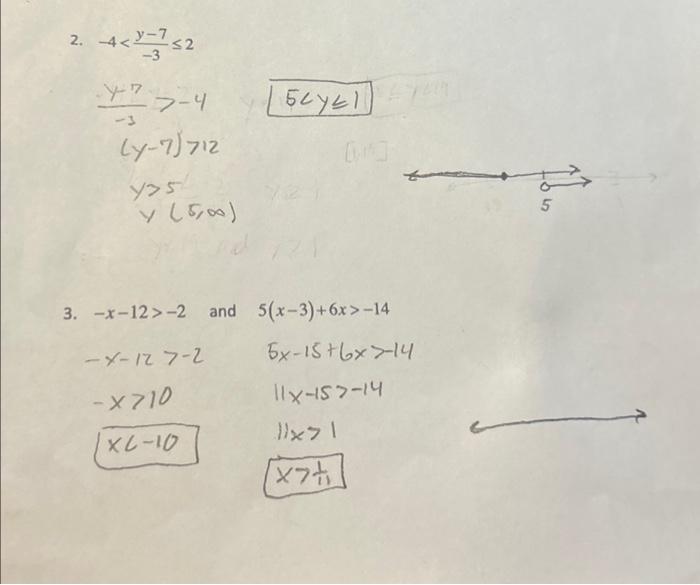 2. -4 < (y-7)/-3 ≤ 2
(y-7)/-3 > -4
5 < y ≤ 1
(y-7) > 12
y > 5
y (5, ∞)
5
3. -x-12 > -2 and 5(x-3)+6x > -14
-x-12 > -2
5x-15+6x > -14
-x > 10
11x-15 > -14
x < -10
11x > 1
x > 1/11